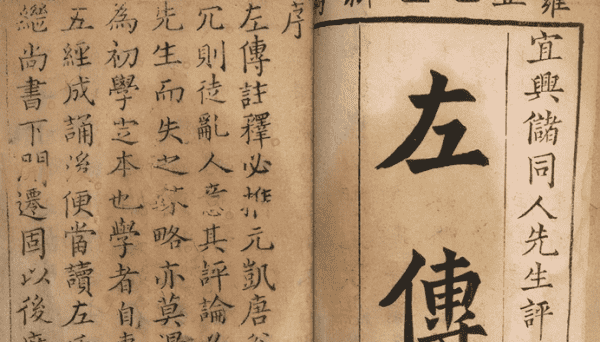 雍正
宜興儲同人先生評
左傳
序
左傳註釋必推元凱唐
冗則徒亂人意其評論
先生而失之略亦莫
為初學定本也學者自
五經成誦後便當讀左
繼尚書下開遷固以後